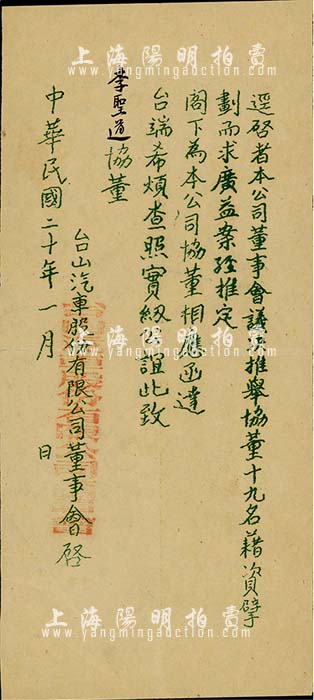 上海陽明拍賣
www.yangmingauction.com
逕啓者本公司董事會議案推舉協董十九名藉資擘
劃而求廣益案經推定
閣下為本公司協董相應函達
台端希煩查照實紉公誼此致
李聖道協董
台山汽車股份有限公司董事會啓
中華民國二十年一月 日
上海陽明拍賣
www.yangmingauction.com
上海陽明拍賣
www.yangmingauction.com